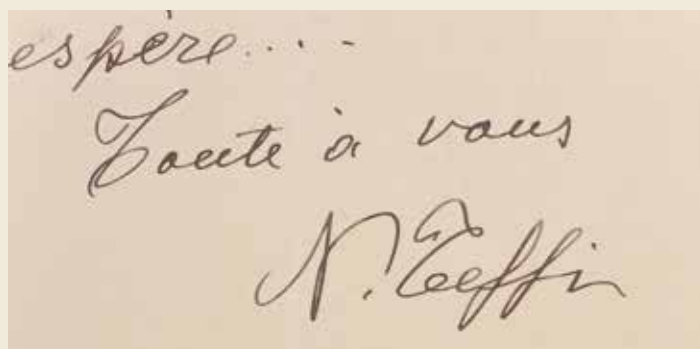 espère....
Toute à vous
N. Teffi